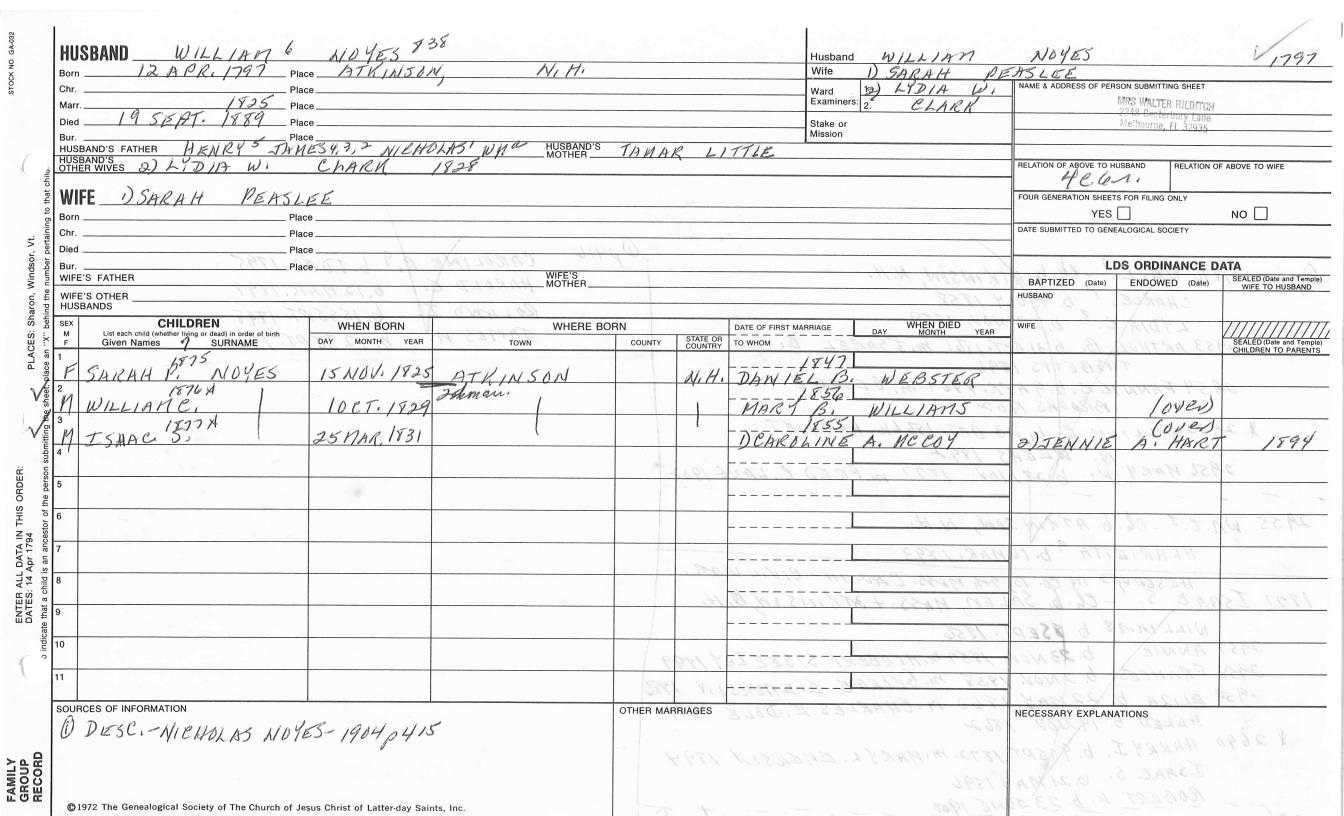 STOCK NO. GA-032
HUSBAND WILLIAM 6 NOYES 838
Born 12 APR. 1797 Place ATKINSON, N.H.
Chr. Place
Marr. 1825 Place
Died 19 SEPT. 1889 Place
Bur. Place
HUSBAND'S FATHER HENRY 5 JAMES 4,3,2 NICHOLAS 1 WM HUSBAND'S MOTHER TAMAR LITTLE
HUSBAND'S OTHER WIVES 2) LYDIA W. CLARK 1828
Husband WILLIAM NOYES 1797
Wife 1) SARAH PEASLEE
Ward Examiners: 2) LYDIA W.
2. CLARK
Stake or Mission
NAME & ADDRESS OF PERSON SUBMITTING SHEET
MRS WALTER HILDITCH
2348 Canterbury Lane
Melbourne, FL 32935
RELATION OF ABOVE TO HUSBAND RELATION OF ABOVE TO WIFE
FOUR GENERATION SHEETS FOR FILING ONLY
YES NO
DATE SUBMITTED TO GENEALOGICAL SOCIETY
WIFE 1) SARAH PEASLEE
Born Place
Chr. Place
Died Place
Bur. Place
WIFE'S FATHER WIFE'S MOTHER
WIFE'S OTHER HUSBANDS
LDS ORDINANCE DATA
BAPTIZED (Date) ENDOWED (Date) SEALED (Date and Temple) WIFE TO HUSBAND
HUSBAND
WIFE
SEALED (Date and Temple) CHILDREN TO PARENTS
SEX M F
CHILDREN
List each child (whether living or dead) in order of birth
Given Names 7 SURNAME
WHEN BORN
DAY MONTH YEAR
WHERE BORN
TOWN COUNTY STATE OR COUNTRY
DATE OF FIRST MARRIAGE
TO WHOM
WHEN DIED
DAY MONTH YEAR
1 1875 1847
F SARAH P. NOYES 15 NOV. 1825 ATKINSON N.H. DANIEL B. WEBSTER
2 1876 A 1856
M WILLIAM C. 1 OCT. 1829 MARY B. WILLIAMS (over)
3 1877 A 1855 (over)
M ISAAC S. 25 MAR. 1831 1) CAROLINE A. McCOY 2) JENNIE A. HART 1894
4
5
6
7
8
9
10
11
SOURCES OF INFORMATION
① DESC.-NICHOLAS NOYES-1904 p 415
OTHER MARRIAGES
NECESSARY EXPLANATIONS
©1972 The Genealogical Society of The Church of Jesus Christ of Latter-day Saints, Inc.
FAMILY GROUP RECORD
ENTER ALL DATA IN THIS ORDER:
DATES: 14 Apr 1794
PLACES: Sharon, Windsor, Vt.
o indicate that a child is an ancestor of the person submitting the sheet, place an "X" behind the number pertaining to that child.